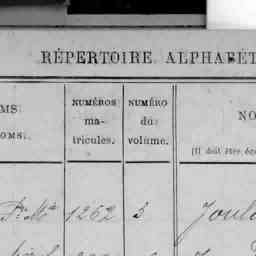 RÉPERTOIRE ALPHABÉT
MS
OMS.
NUMÉROS
ma-
tricules.
NUMÉRO
du
volume.
NO
(Il doit être éc
1262 5